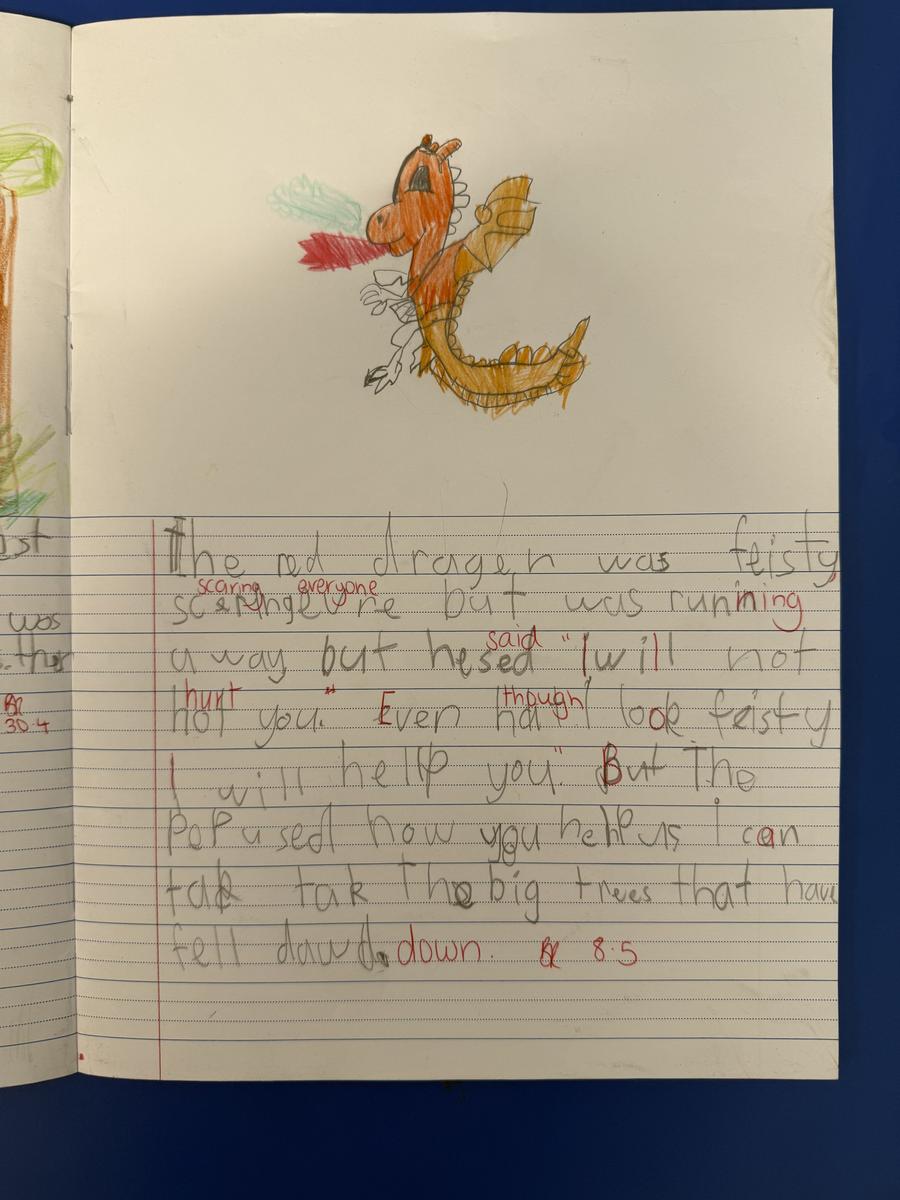 ost
was
ther
BR
30.4
The red dragen was feisty
scaring everyone
scaringevre but was running
away but hesed said "I will not
hot hurt you." Even ha though I look feisty
I will hellp you". But The
pepu sed how you hehp us I can
tak tak The big trees that have
fell dawd. down. BR 8.5